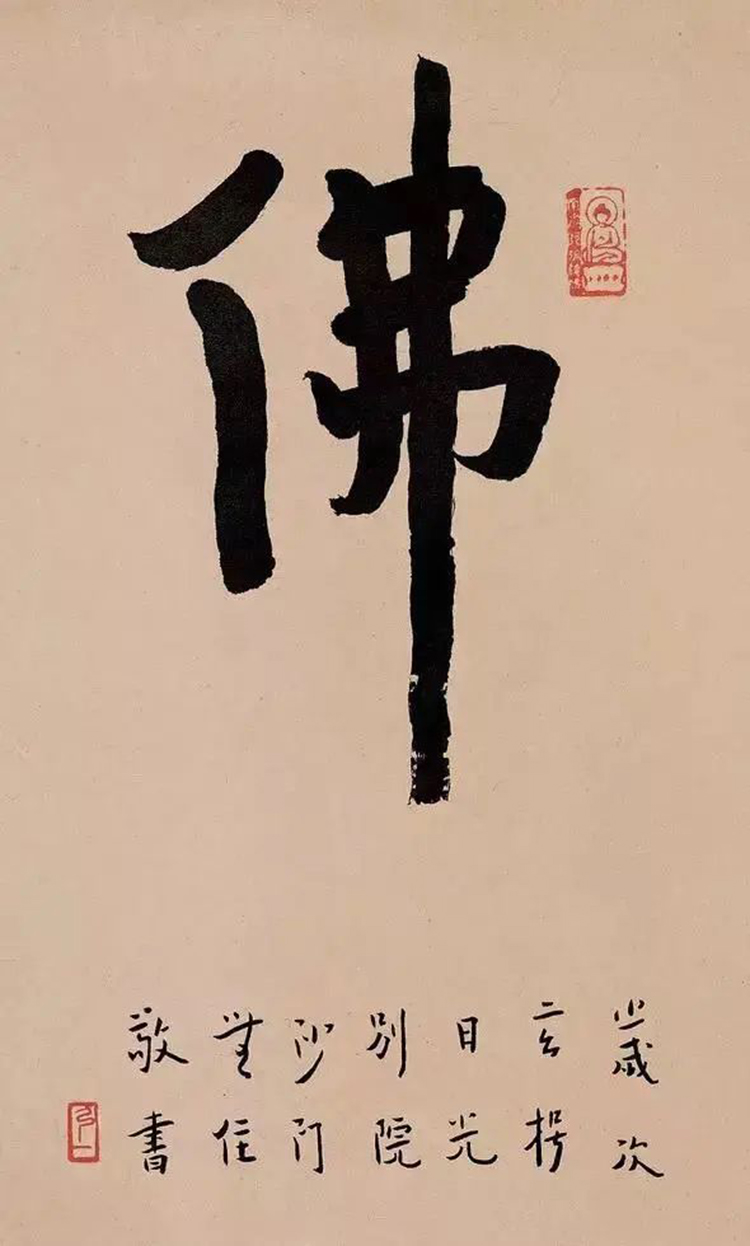 佛
歲次
玄枵
日光
別院
沙門
無住
敬書
弘一